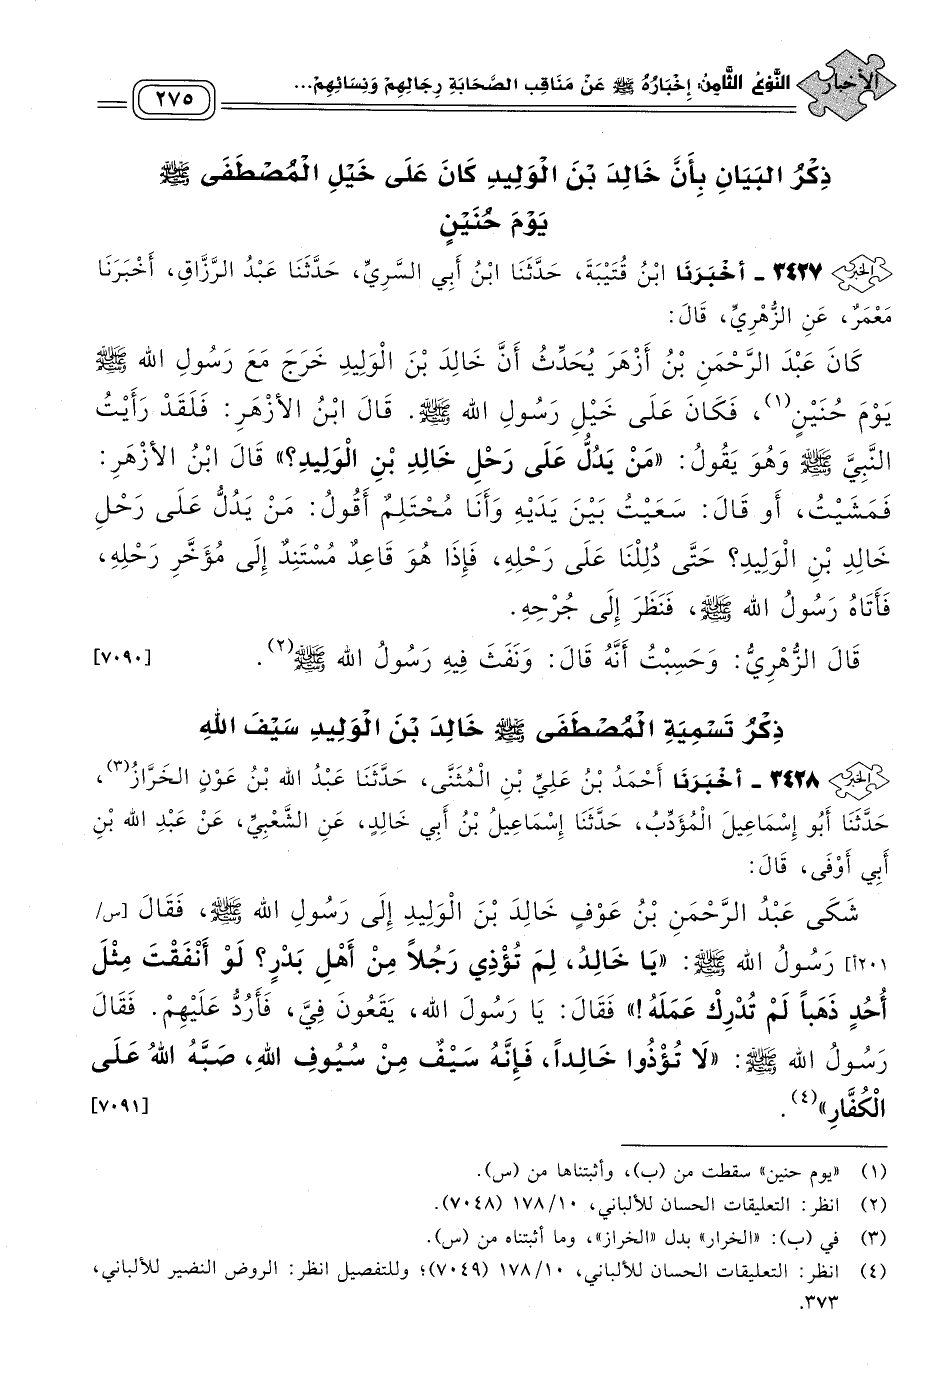 الأخبار النَّوْعُ الثَّامِنُ: إِخْبَارُهُ ﷺ عَنْ مَنَاقِبِ الصَّحَابَةِ رِجَالِهِمْ وَنِسَائِهِمْ...
٢٧٥
ذِكْرُ البَيَانِ بِأَنَّ خَالِدَ بْنَ الْوَلِيدِ كَانَ عَلَى خَيْلِ الْمُصْطَفَى ﷺ
يَوْمَ حُنَيْنٍ
الخبر ٣٤٢٧ - أَخْبَرَنَا ابْنُ قُتَيْبَةَ، حَدَّثَنَا ابْنُ أَبِي السَّرِيِّ، حَدَّثَنَا عَبْدُ الرَّزَّاقِ، أَخْبَرَنَا
مَعْمَرٌ، عَنِ الزُّهْرِيِّ، قَالَ:
كَانَ عَبْدَ الرَّحْمَنِ بْنُ أَزْهَرَ يُحَدِّثُ أَنَّ خَالِدَ بْنَ الْوَلِيدِ خَرَجَ مَعَ رَسُولِ الله ﷺ
يَوْمَ حُنَيْنٍ(١)، فَكَانَ عَلَى خَيْلِ رَسُولِ الله ﷺ. قَالَ ابْنُ الأَزْهَرِ: فَلَقَدْ رَأَيْتُ
النَّبِيَّ ﷺ وَهُوَ يَقُولُ: «مَنْ يَدُلُّ عَلَى رَحْلِ خَالِدِ بْنِ الْوَلِيدِ؟» قَالَ ابْنُ الأَزْهَرِ:
فَمَشَيْتُ، أَو قَالَ: سَعَيْتُ بَيْنَ يَدَيْهِ وَأَنَا مُحْتَلِمٌ أَقُولُ: مَنْ يَدُلُّ عَلَى رَحْلِ
خَالِدِ بْنِ الْوَلِيدِ؟ حَتَّى دُلِلْنَا عَلَى رَحْلِهِ، فَإِذَا هُوَ قَاعِدٌ مُسْتَنِدٌ إِلَى مُؤَخَّرِ رَحْلِهِ،
فَأَتَاهُ رَسُولُ الله ﷺ، فَنَظَرَ إِلَى جُرْحِهِ.
قَالَ الزُّهْرِيُّ: وَحَسِبْتُ أَنَّهُ قَالَ: وَنَفَثَ فِيهِ رَسُولُ الله ﷺ(٢). [٧٠٩٠]
ذِكْرُ تَسْمِيَةِ الْمُصْطَفَى ﷺ خَالِدَ بْنَ الْوَلِيدِ سَيْفَ اللهِ
الخبر ٣٤٢٨ - أَخْبَرَنَا أَحْمَدُ بْنُ عَلِيِّ بْنِ الْمُثَنَّى، حَدَّثَنَا عَبْدُ الله بْنُ عَوْنٍ الخَرَّازُ(٣)،
حَدَّثَنَا أَبُو إِسْمَاعِيلَ الْمُؤَدِّبُ، حَدَّثَنَا إِسْمَاعِيلُ بْنُ أَبِي خَالِدٍ، عَنِ الشَّعْبِيِّ، عَنْ عَبْدِ الله بْنِ
أَبِي أَوْفَى، قَالَ:
شَكَى عَبْدُ الرَّحْمَنِ بْنُ عَوْفٍ خَالِدَ بْنَ الْوَلِيدِ إِلَى رَسُولِ الله ﷺ، فَقَالَ [س/
٢٠١أ] رَسُولُ الله ﷺ: «يَا خَالِدُ، لِمَ تُؤْذِي رَجُلاً مِنْ أَهْلِ بَدْرٍ؟ لَوْ أَنْفَقْتَ مِثْلَ
أُحُدٍ ذَهَباً لَمْ تُدْرِكْ عَمَلَهُ!» فَقَالَ: يَا رَسُولَ الله، يَقَعُونَ فِيَّ، فَأَرُدُّ عَلَيْهِمْ. فَقَالَ
رَسُولُ الله ﷺ: «لَا تُؤْذُوا خَالِداً، فَإِنَّهُ سَيْفٌ مِنْ سُيُوفِ اللهِ، صَبَّهُ اللهُ عَلَى
الْكُفَّارِ»(٤). [٧٠٩١]
(١) «يوم حنين» سقطت من (ب)، وأثبتناها من (س).
(٢) انظر: التعليقات الحسان للألباني، ١٠/ ١٧٨ (٧٠٤٨).
(٣) في (ب): «الخرار» بدل «الخراز»، وما أثبتناه من (س).
(٤) انظر: التعليقات الحسان للألباني، ١٠/ ١٧٨ (٧٠٤٩)؛ وللتفصيل انظر: الروض النضير للألباني،
٣٧٣.